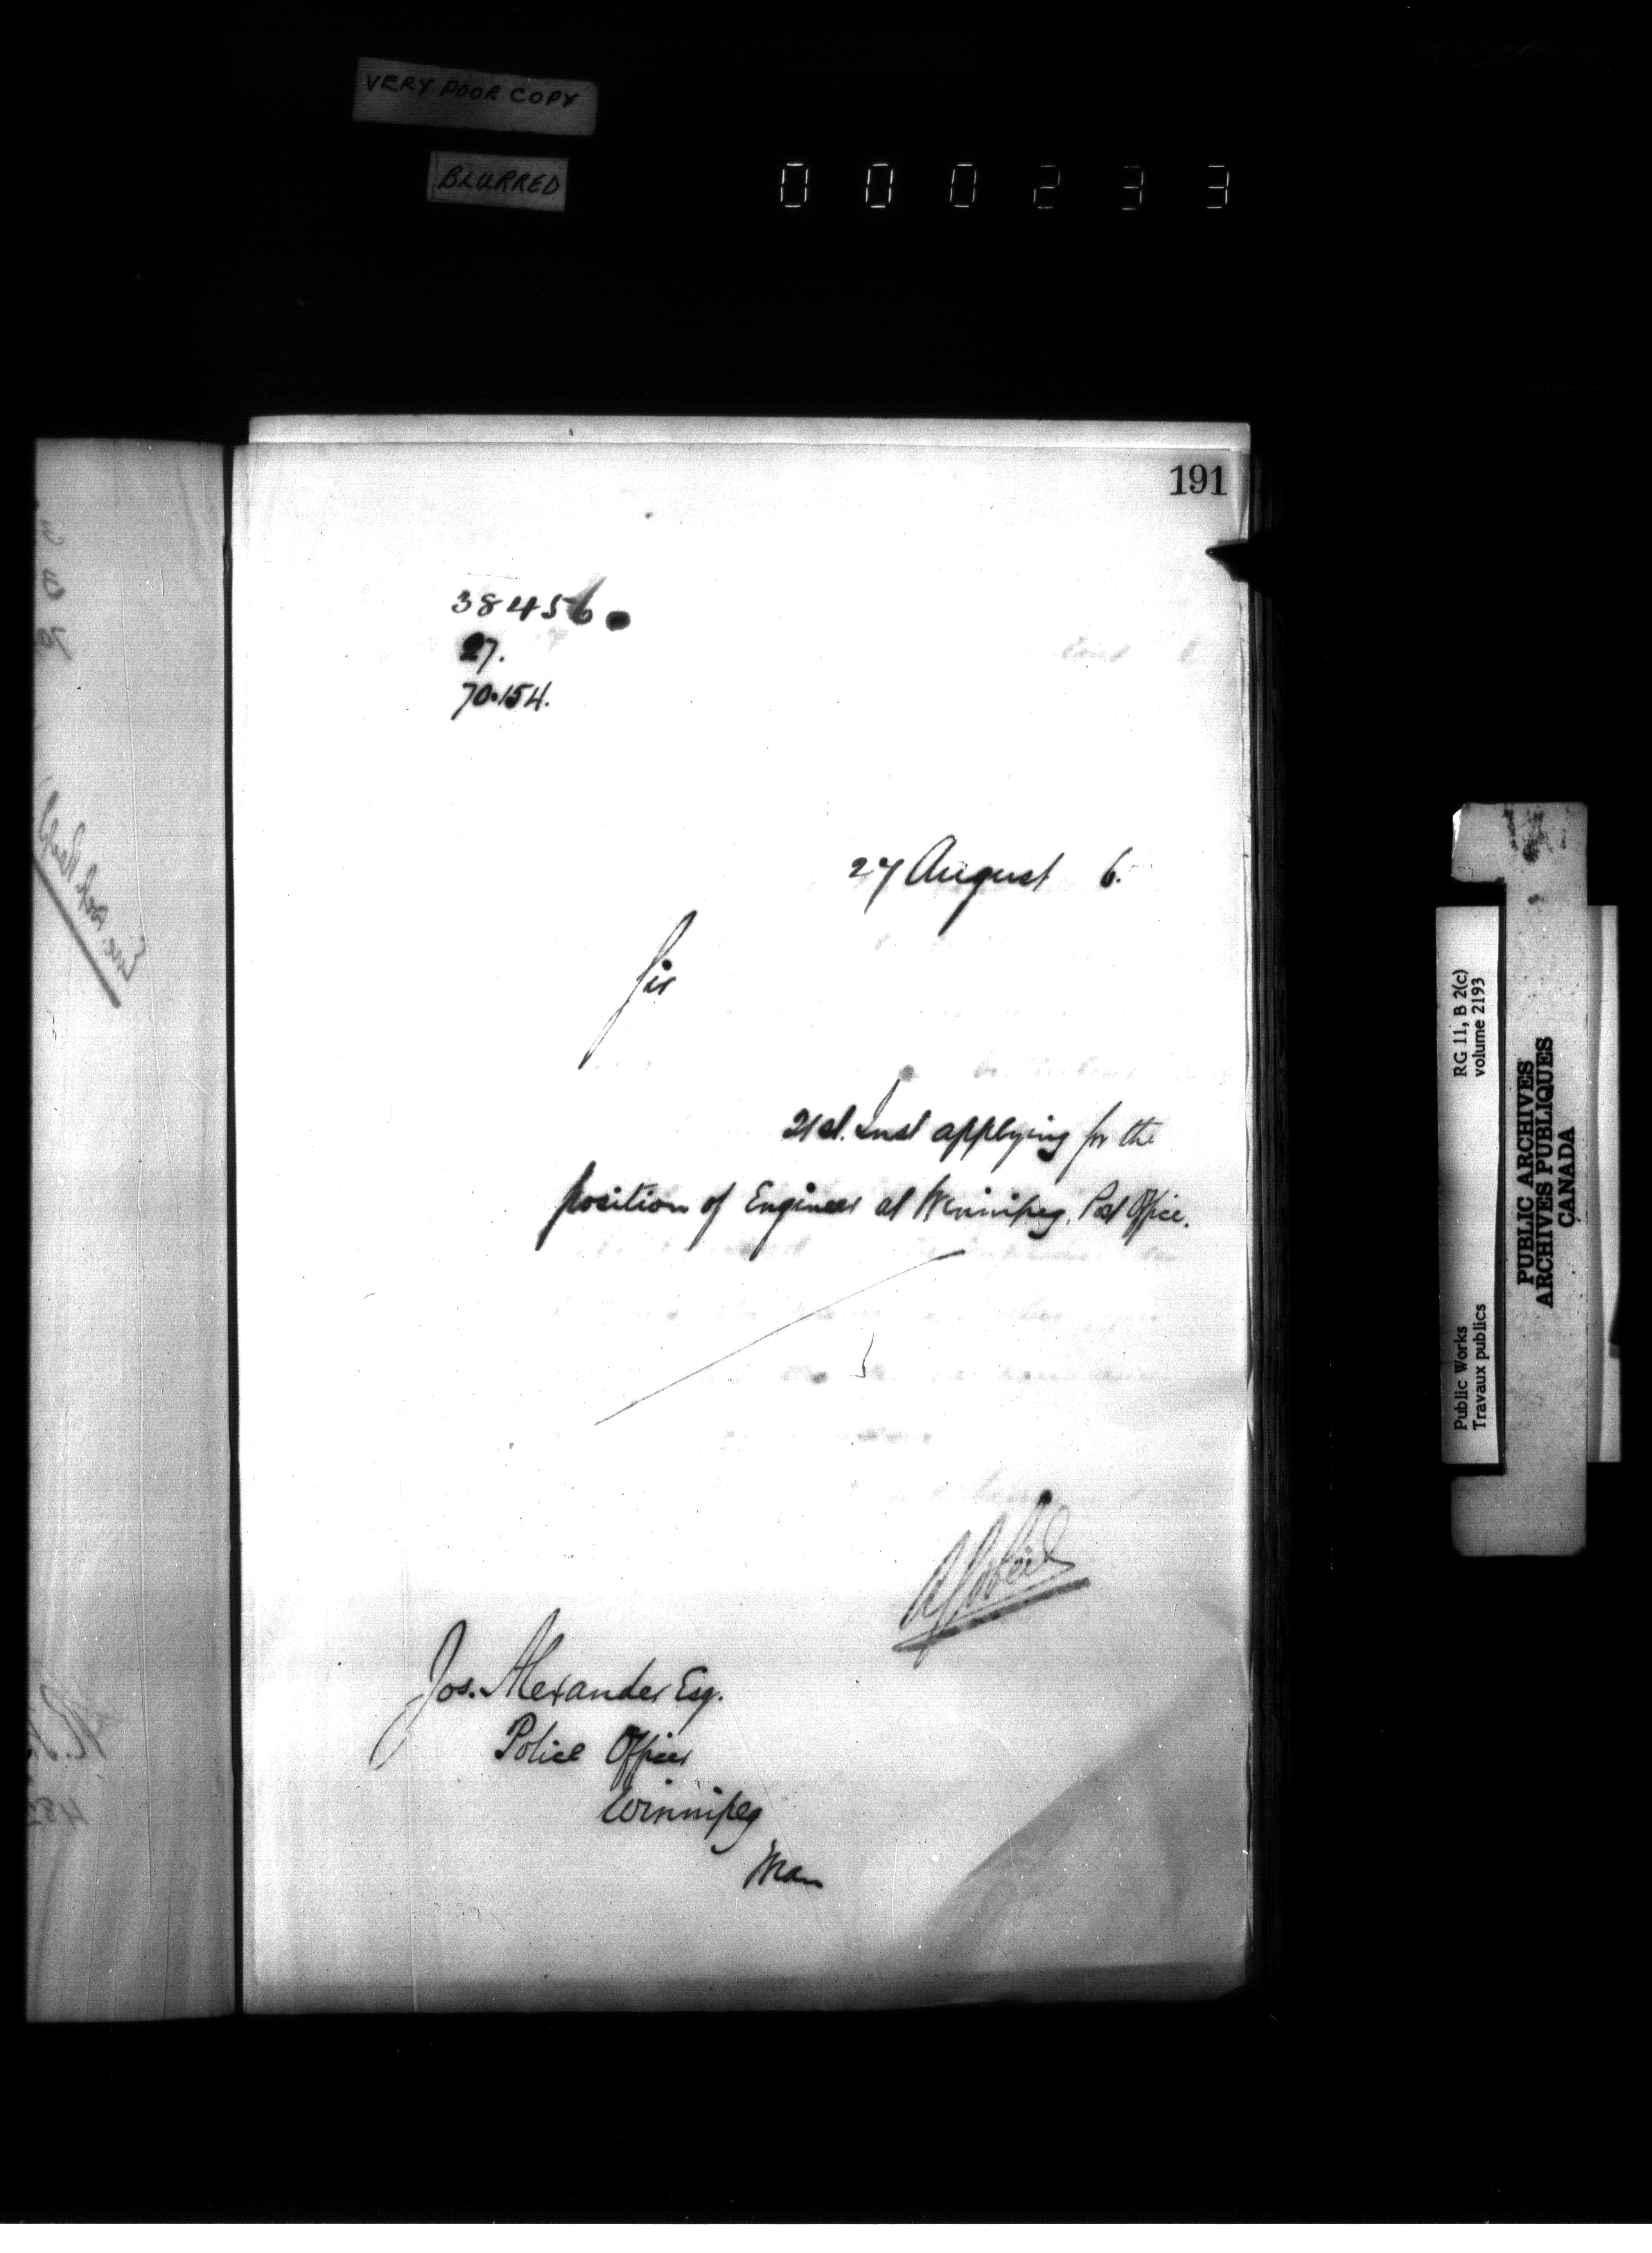 VERY POOR COPY
BLURRED
000233
191
38456
27.
70.154.
27 August 6.
Sir
21st. Inst applying for the
position of Engineer at Winnipeg, Post Office.
Jos. Alexander Esq.
Police Officer
Winnipeg
Man
RG 11, B 2(c)
volume 2193
Public Works
Travaux publics
PUBLIC ARCHIVES
ARCHIVES PUBLIQUES
CANADA